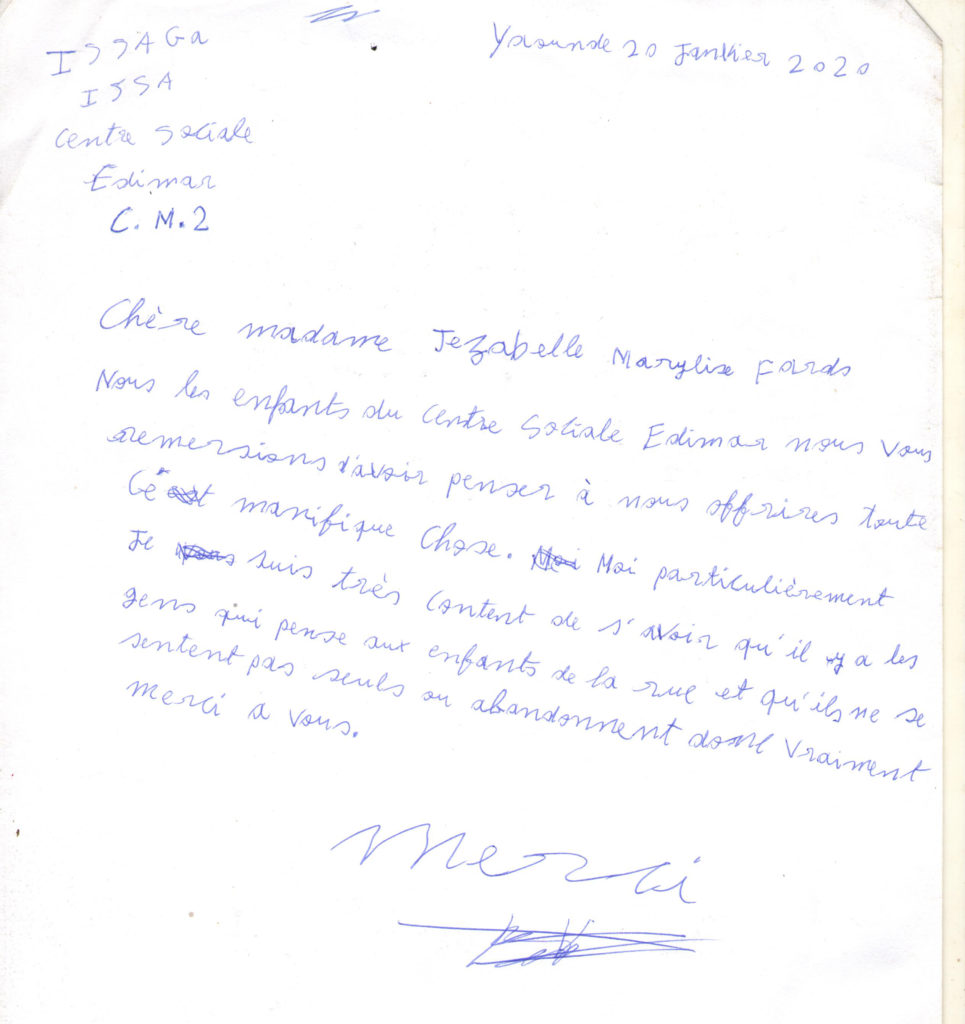 ISSAGa
ISSA
Centre Sociale
Edimar
C.M.2
Yaounde 20 Janvier 2020
Chère madame Jezabelle Marylise Fards
Nous les enfants du Centre Sociale Edimar nous vous
remersions d'avoir penser à nous offrires toute
Cé manifique Chose. Moi particulièrement
Je suis très Content de s'avoir qu'il y a les
gens qui pense aux enfants de la rue et qu'ils ne se
sentent pas seuls ou abandonnent donc vraiment
merci a vous.
Merci